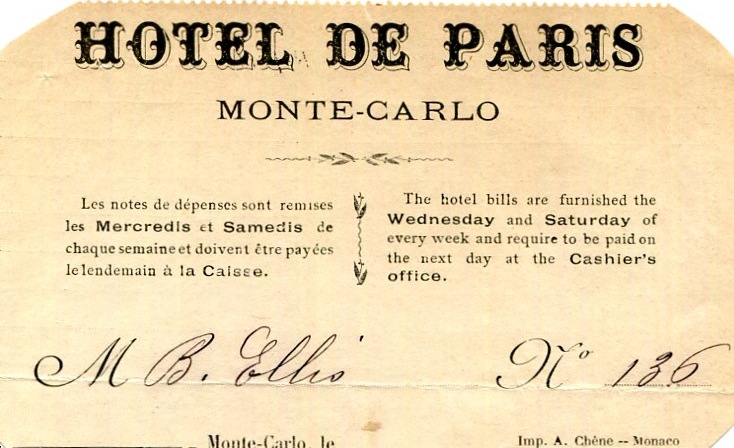 HOTEL DE PARIS
MONTE-CARLO
Les notes de dépenses sont remises
les Mercredis et Samedis de
chaque semaine et doivent être payées
le lendemain à la Caisse.
The hotel bills are furnished the
Wednesday and Saturday of
every week and require to be paid on
the next day at the Cashier's
office.
M B. Ellis Nº 136
Monte-Carlo, le
Imp. A. Chêne -- Monaco